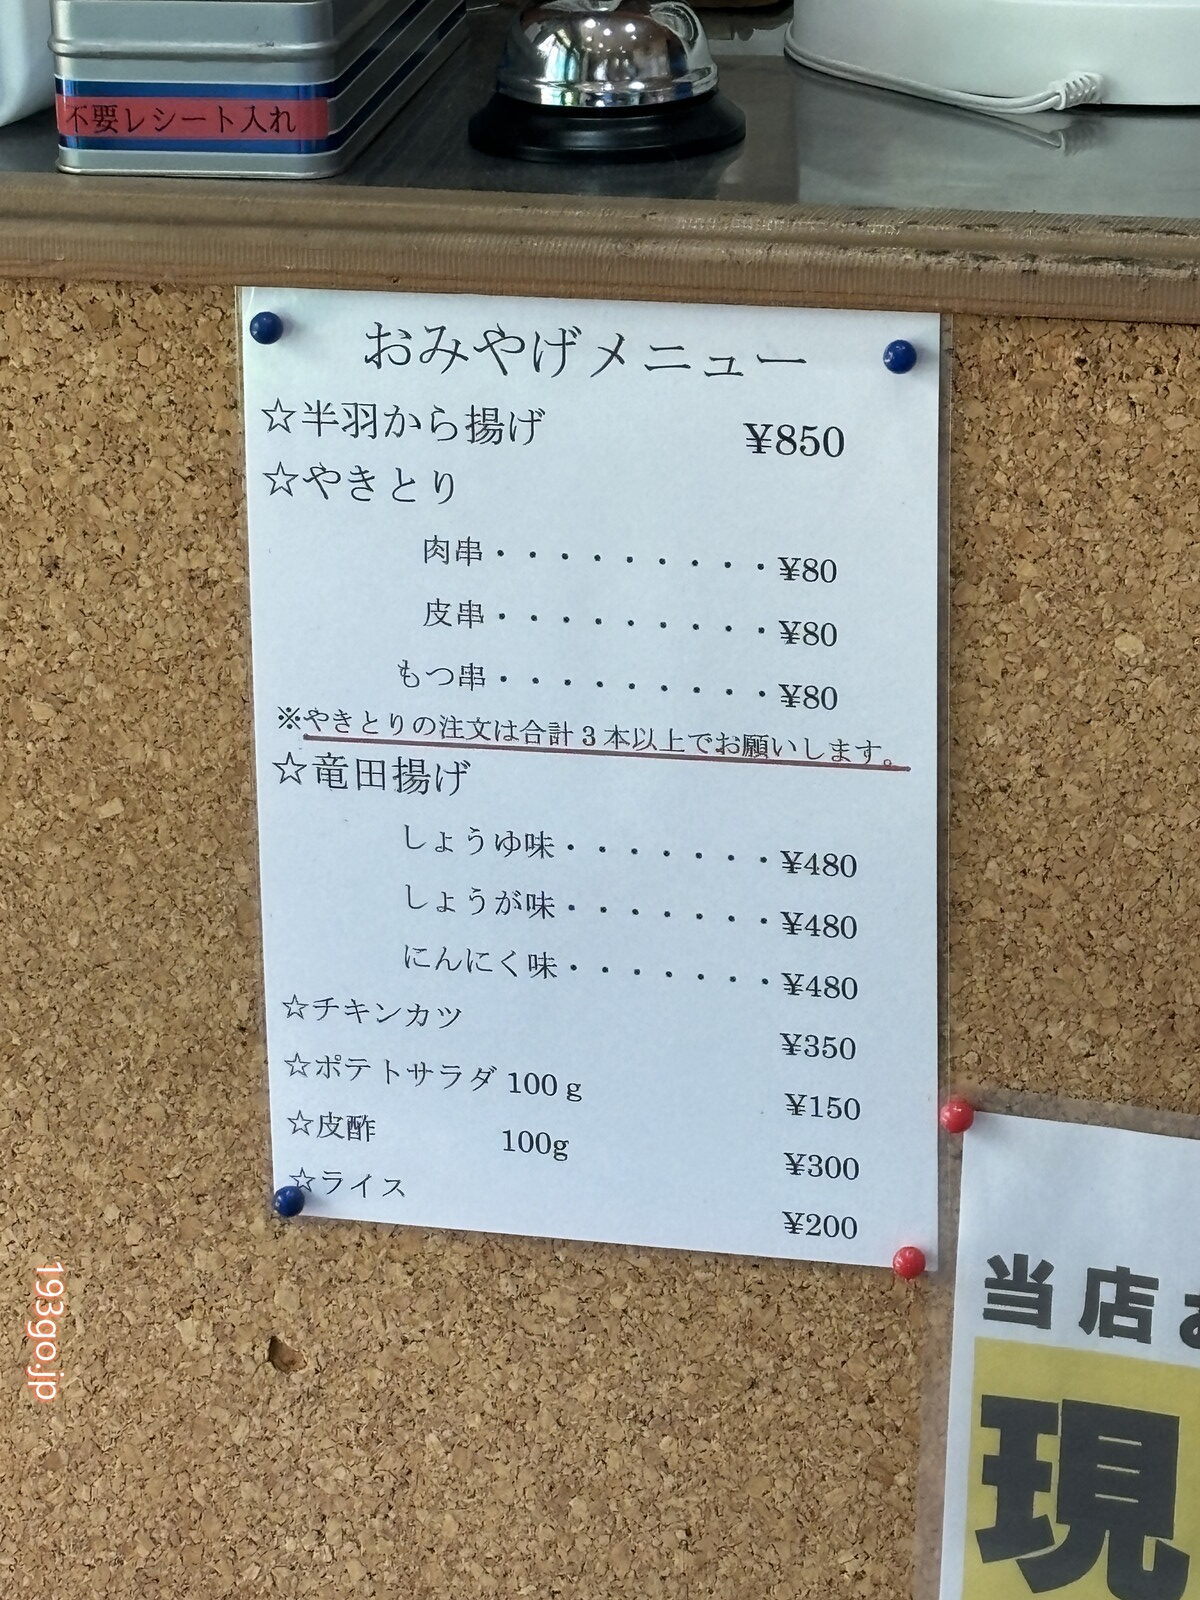 不要レシート入れ
おみやげメニュー
☆半羽から揚げ ¥850
☆やきとり
肉串・・・・・・・・・・¥80
皮串・・・・・・・・・・¥80
もつ串・・・・・・・・・¥80
※やきとりの注文は合計3本以上でお願いします。
☆竜田揚げ
しょうゆ味・・・・・・・¥480
しょうが味・・・・・・・¥480
にんにく味・・・・・・・¥480
☆チキンカツ ¥350
☆ポテトサラダ 100g ¥150
☆皮酢 100g ¥300
☆ライス ¥200
当店
現
193go.jp